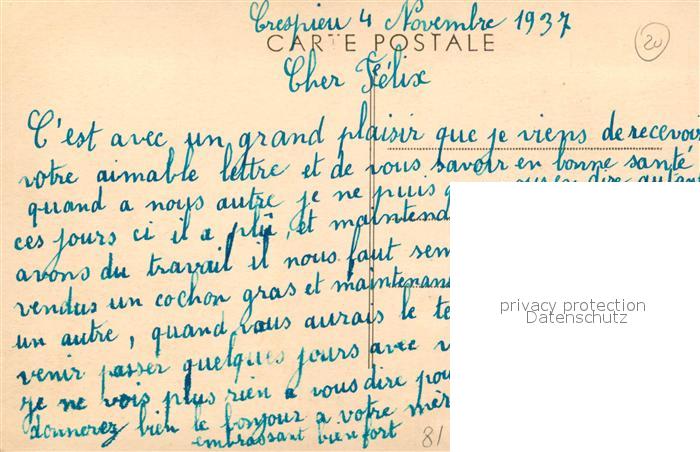 Crespieu 4 Novembre 1937
CARTE POSTALE
20
Cher Félix
C'est avec un grand plaisir que je viens de recevoir
votre aimable lettre et de vous savoir en bonne santé
quand a nous autre je ne puis dire autant
ces jours ci il a plu, et maintend
avons du travail il nous faut sem
vendus un cochon gras et maintenant
un autre, quand vous aurais le te
venir passer quelques jours avec
je ne vois plus rien a vous dire pou
donnerez bien le bonjour a votre mèr
embrassant bien fort
81
privacy protection
Datenschutz